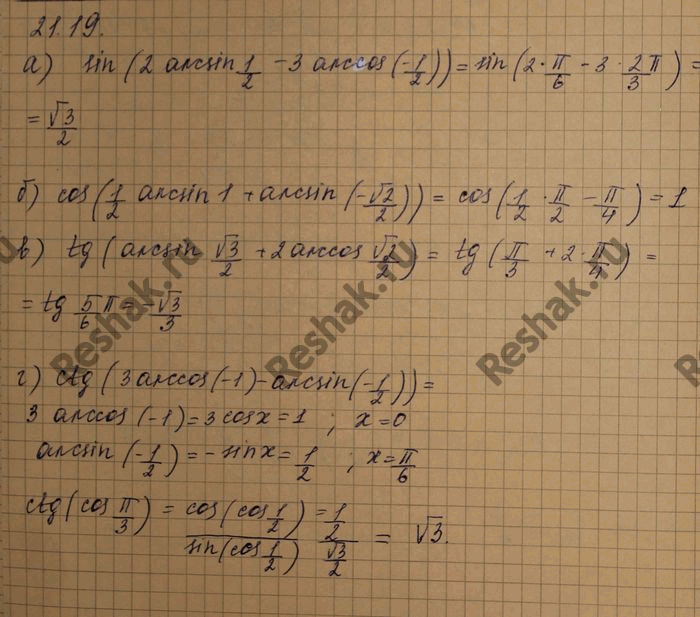 21.19.
а) sin(2 arcsin 1/2 - 3 arccos(-1/2)) = sin(2·π/6 - 3·2π/3) =
= √3/2
б) cos(1/2 arcsin 1 + arcsin(-√2/2)) = cos(1/2·π/2 - π/4) = 1
в) tg(arcsin √3/2 + 2 arccos √2/2) = tg(π/3 + 2·π/4) =
= tg 5/6 π = -√3/3
г) ctg(3 arccos(-1) - arcsin(-1/2)) =
3 arccos(-1) = 3 cosx = 1 ; x = 0
arcsin(-1/2) = -sinx = 1/2 ; x = π/6
ctg(cos π/3) = cos(cos 1/2)/sin(cos 1/2) = 1/2/√3/2 = √3.
Reshak.ru
Reshak.ru
Reshak.ru